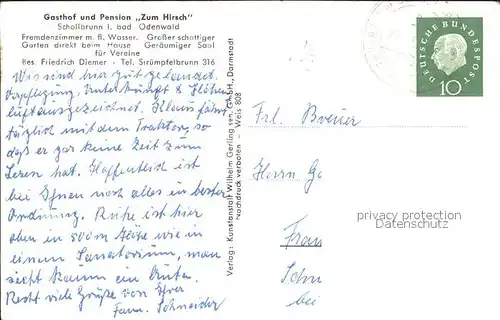 Gasthof und Pension „Zum Hirsch"
Schollbrunn i. bad Odenwald
Fremdenzimmer m. fl. Wasser. Großer schattiger
Garten direkt beim Hause Geräumiger Saal
für Vereine
Bes. Friedrich Diemer - Tel. Strümpfelbrunn 316
Wir sind hier gut gelandet.
Verpflegung, Unterkunft & Höhen
luft ausgezeichnet. Klaus fährt
täglich mit dem Traktor, so
daß er gar keine Zeit zum
Lesen hat. Hoffentlich ist
bei Ihnen noch alles in bester
Ordnung. Ruhe ist hier
oben in 500m Höhe wie in
einem Sanatorium, man
sieht kaum ein Auto.
Recht viele Grüße von Ihrer
Fam. Schneider
Verlag: Kunstanstalt Wilhelm Gerling sen. GmbH., Darmstadt
Nachdruck verboten - Weis 808
DEUTSCHE BUNDESPOST
10
Frl. Breuer
Herrn Ge
Frau
bei
privacy protection
Datenschutz